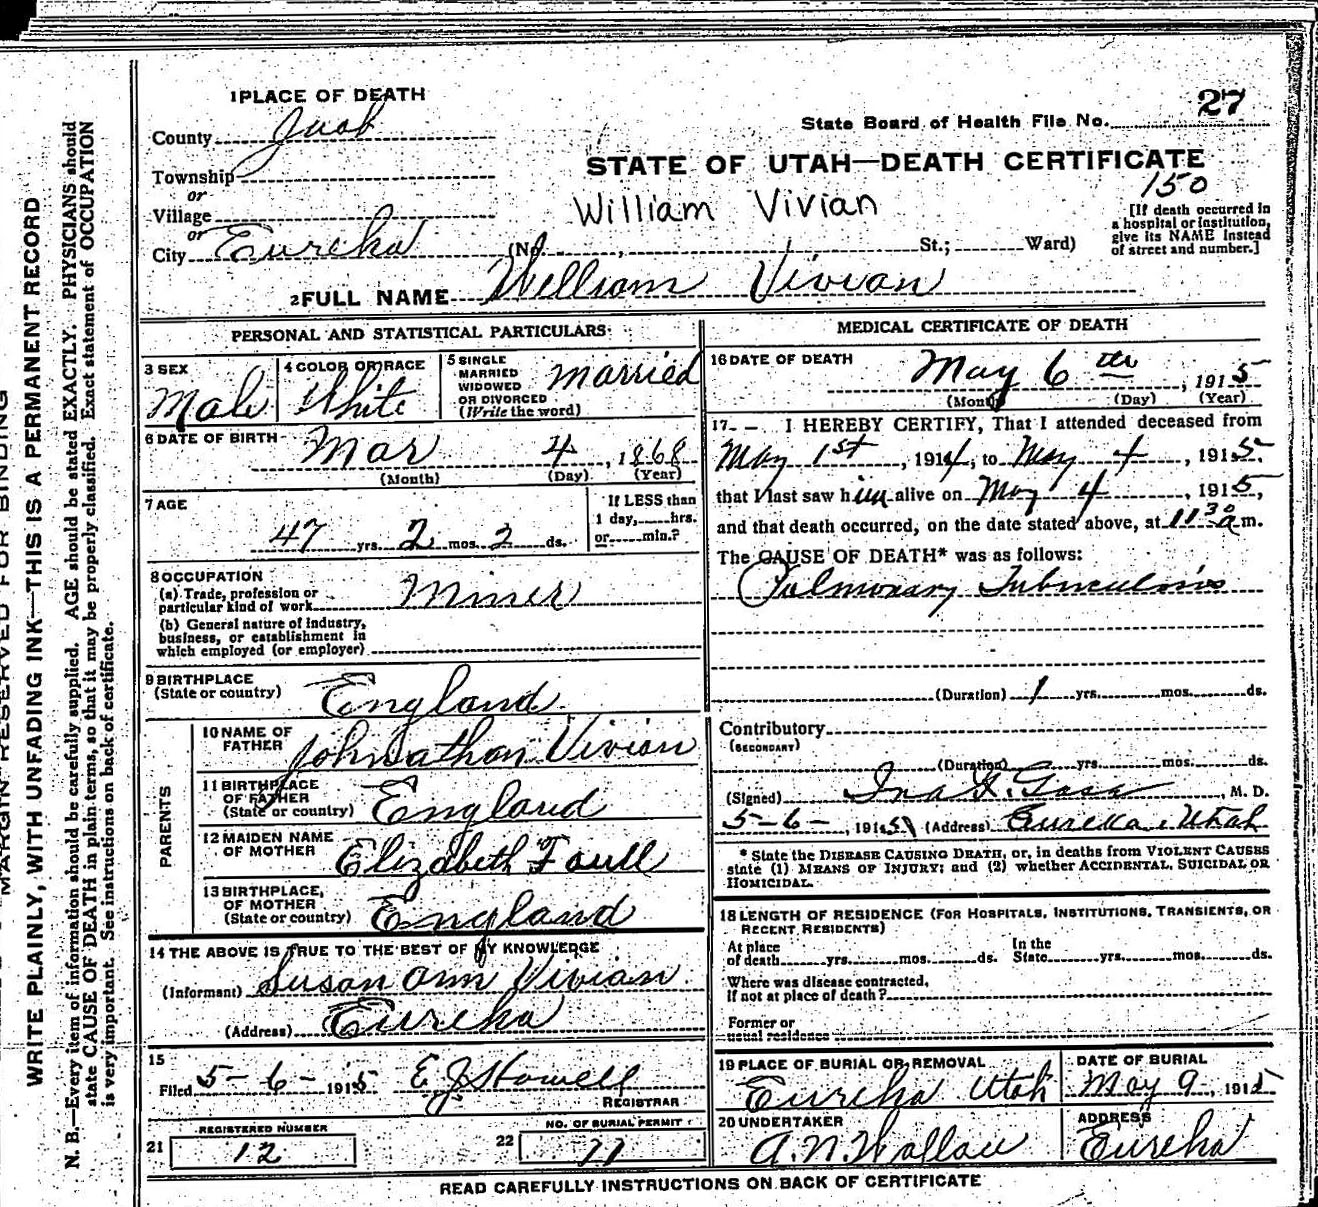 1 PLACE OF DEATH
County Juab
Township
or
Village
or
City Eureka (No. St.; Ward)
27
State Board of Health File No.
STATE OF UTAH—DEATH CERTIFICATE
150
William Vivian
[If death occurred in
a hospital or institution,
give its NAME instead
of street and number.]
2 FULL NAME William Vivian
PERSONAL AND STATISTICAL PARTICULARS
3 SEX
Male
4 COLOR OR RACE
White
5 SINGLE
MARRIED
WIDOWED
OR DIVORCED
(Write the word)
Married
6 DATE OF BIRTH
Mar 4, 1868
(Month) (Day) (Year)
7 AGE
47 yrs. 2 mos. 2 ds.
If LESS than
1 day, hrs.
or min.?
8 OCCUPATION
(a) Trade, profession or
particular kind of work Miner
(b) General nature of industry,
business, or establishment in
which employed (or employer)
9 BIRTHPLACE
(State or country) England
PARENTS
10 NAME OF
FATHER Johnathan Vivian
11 BIRTHPLACE
OF FATHER
(State or country) England
12 MAIDEN NAME
OF MOTHER Elizabeth Foull
13 BIRTHPLACE,
OF MOTHER
(State or country) England
14 THE ABOVE IS TRUE TO THE BEST OF MY KNOWLEDGE
(Informant) Susan Ann Vivian
(Address) Eureka
15
Filed 5-6- 1915 E J Howell
REGISTRAR
21 REGISTERED NUMBER
12
22 NO. OF BURIAL PERMIT
11
MEDICAL CERTIFICATE OF DEATH
16 DATE OF DEATH
May 6th, 1915
(Month) (Day) (Year)
17- I HEREBY CERTIFY, That I attended deceased from
May 1st, 1914, to May 4, 1915.
that I last saw him alive on May 4, 1915,
and that death occurred, on the date stated above, at 11 30 a m.
The CAUSE OF DEATH* was as follows:
Pulmonary Tuberculosis
(Duration) 1 yrs. mos. ds.
Contributory
(SECONDARY)
(Duration) yrs. mos. ds.
(Signed) , M. D.
5-6-, 1915 (Address) Eureka, Utah
* State the DISEASE CAUSING DEATH, or, in deaths from VIOLENT CAUSES
state (1) MEANS OF INJURY; and (2) whether ACCIDENTAL, SUICIDAL OR
HOMICIDAL.
18 LENGTH OF RESIDENCE (FOR HOSPITALS, INSTITUTIONS, TRANSIENTS, OR
RECENT RESIDENTS)
At place
of death yrs. mos. ds.
In the
State yrs. mos. ds.
Where was disease contracted,
If not at place of death?
Former or
usual residence
19 PLACE OF BURIAL OR REMOVAL
Eureka Utah
DATE OF BURIAL
May 9, 1915
20 UNDERTAKER
A. N. Wallace
ADDRESS
Eureka
READ CAREFULLY INSTRUCTIONS ON BACK OF CERTIFICATE
MARGIN RESERVED FOR BINDING
WRITE PLAINLY, WITH UNFADING INK—THIS IS A PERMANENT RECORD
N. B.—Every item of information should be carefully supplied. AGE should be stated EXACTLY. PHYSICIANS should
state CAUSE OF DEATH in plain terms, so that it may be properly classified. Exact statement of OCCUPATION
is very important. See instructions on back of certificate.